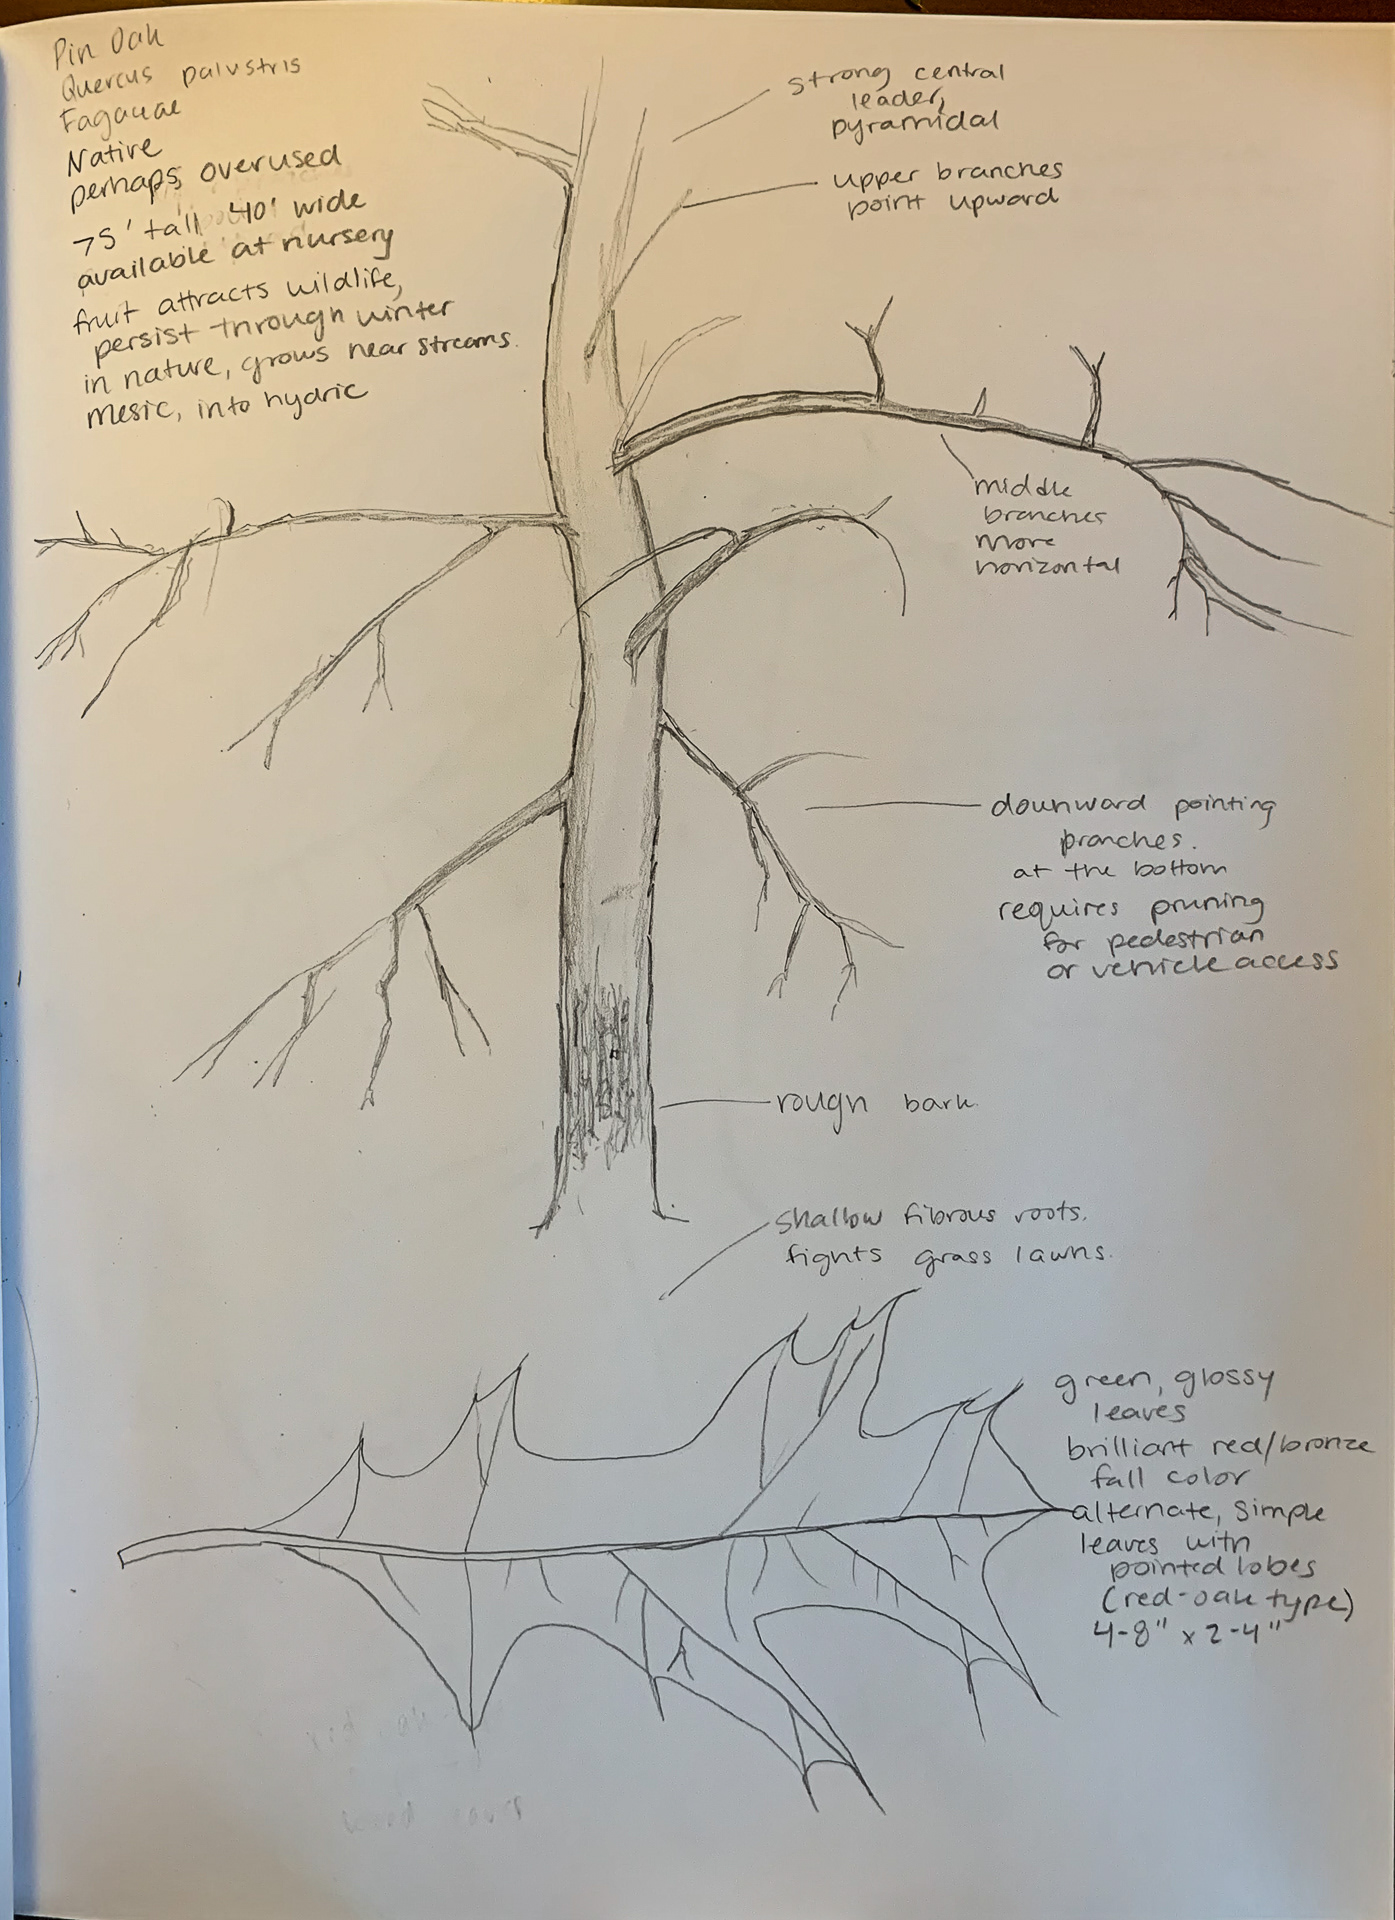 Pin Oak
Quercus palustris
Fagaceae
Native
perhaps overused
75' tall 40' wide
available at nursery
fruit attracts wildlife,
persist through winter
in nature, grows near streams.
mesic, into hydric
strong central
leader,
pyramidal
upper branches
point upward
middle
branches
more
horizontal
downward pointing
branches.
at the bottom
requires pruning
for pedestrian
or vehicle access
rough bark.
shallow fibrous roots.
fights grass lawns.
green, glossy
leaves
brilliant red/bronze
fall color
alternate, simple
leaves with
pointed lobes
(red-oak type)
4-8" x 2-4"